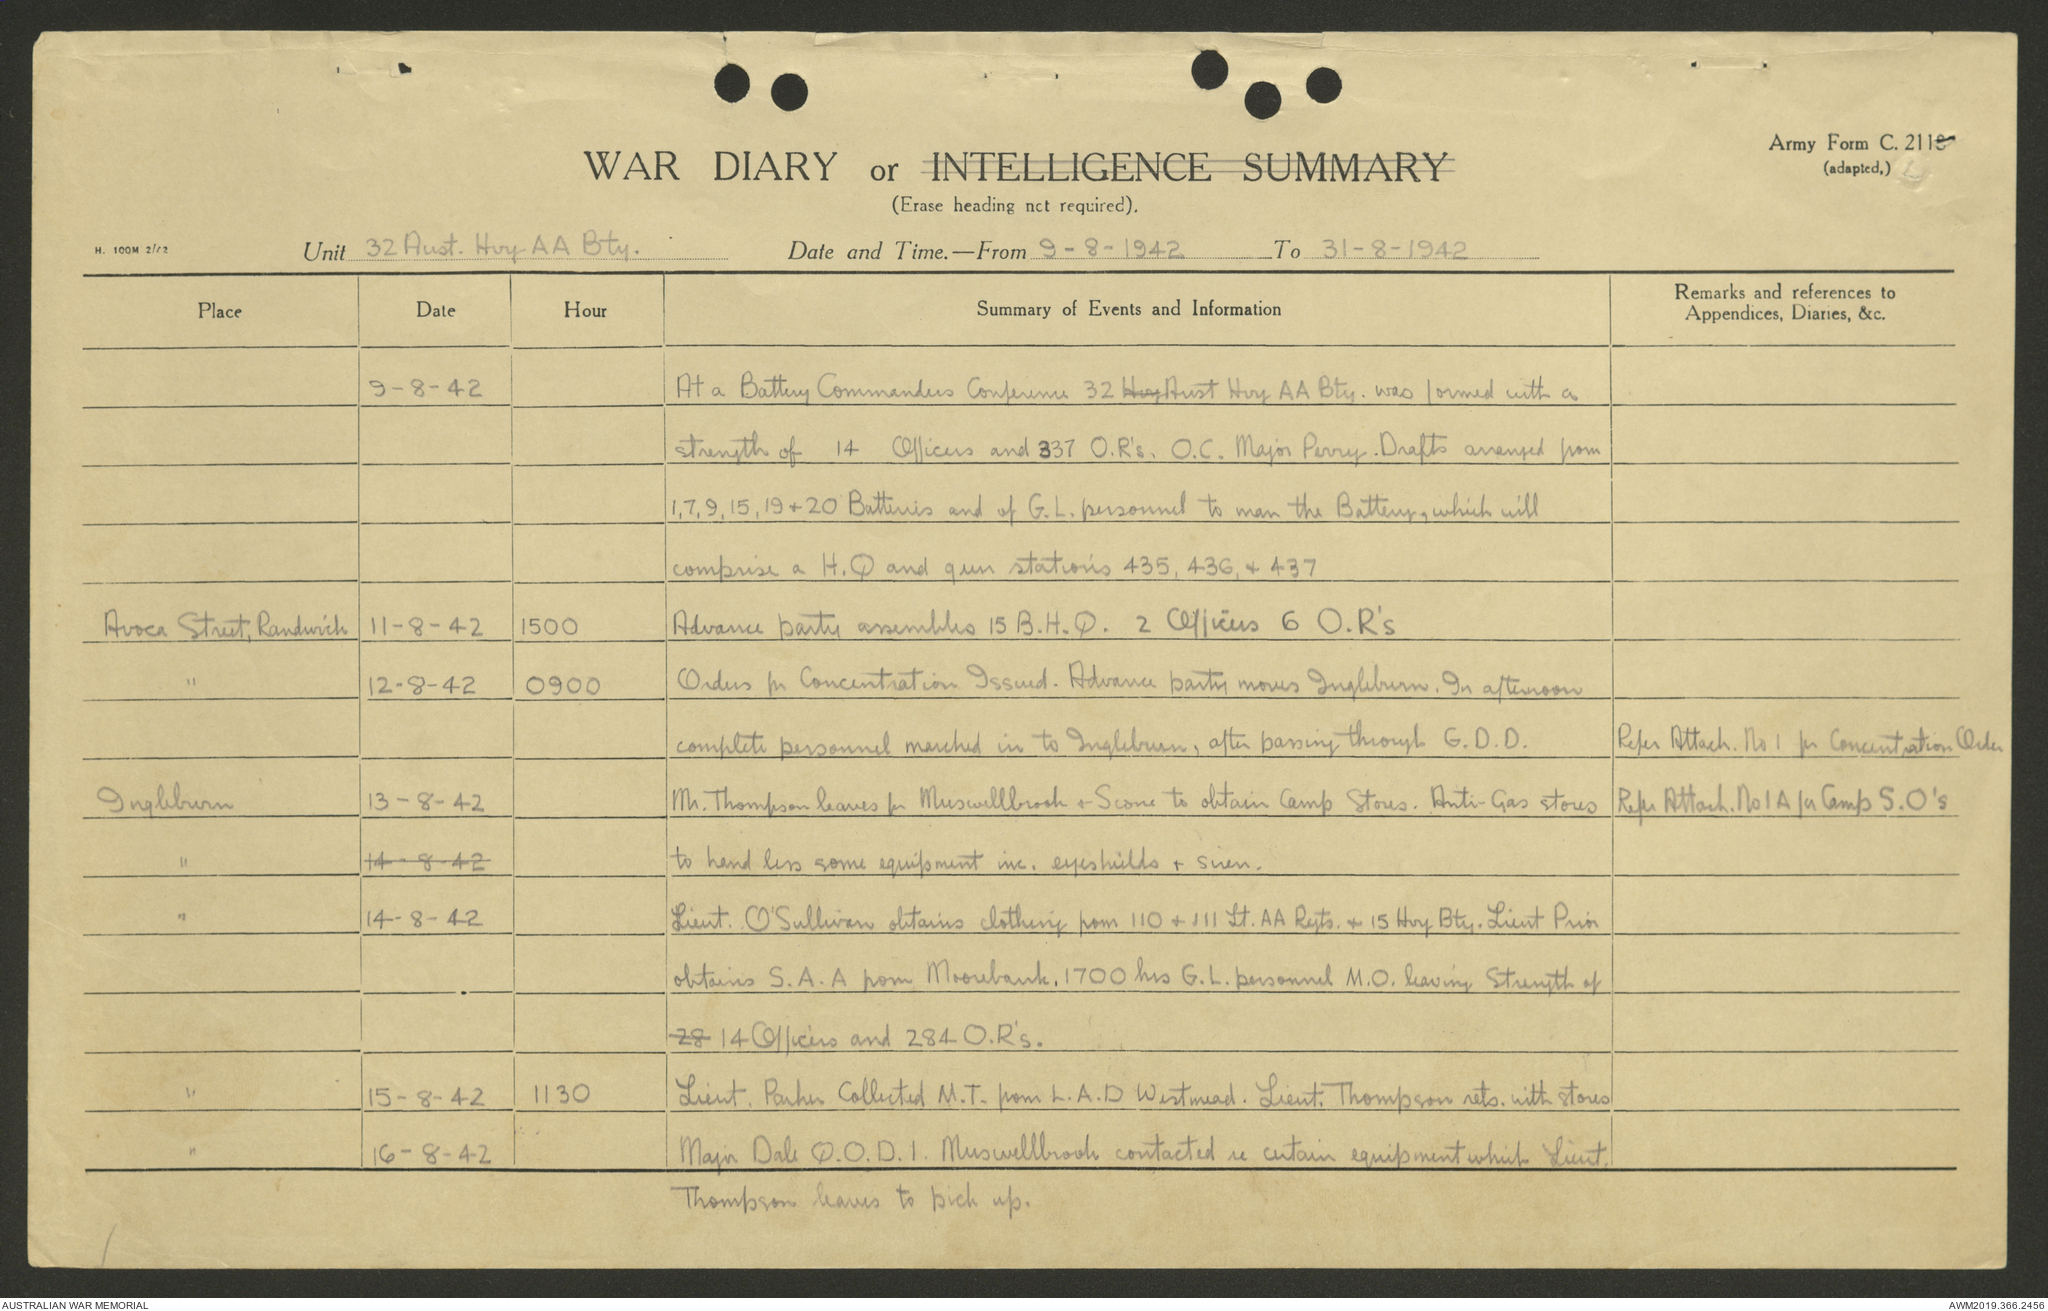 Army Form C. 2118
(adapted.)
WAR DIARY or INTELLIGENCE SUMMARY
(Erase heading nct required).
H. 100M 2/42
Unit 32 Aust. Hvy AA Bty. Date and Time.—From 9-8-1942 To 31-8-1942
Place Date Hour Summary of Events and Information Remarks and references to
Appendices, Diaries, &c.
9-8-42 At a Battery Commanders Conference 32 Hvy Aust Hvy AA Bty. was formed with a
strength of 14 Officers and 337 O.R's. O.C. Major Perry. Drafts arranged from
1,7,9,15,19+20 Batteries and of G.L. personnel to man the Battery, which will
comprise a H.Q and gun stations 435, 436, + 437
Avoca Street, Randwick 11-8-42 1500 Advance party assembles 15 B.H.Q. 2 Officers 6 O.R's
" 12-8-42 0900 Orders for Concentration Issued. Advance party moves Ingleburn. In afternoon
complete personnel marched in to Ingleburn, after passing through G.D.D. Refer Attach. No 1 for Concentration Order
Ingleburn 13-8-42 Mr. Thompson leaves for Muswellbrook + Scone to obtain Camp Stores. Anti-Gas stores Refer Attach. No 1A for Camp S.O's
" 14-8-42 to hand less some equipment inc. eyeshields + siren.
" 14-8-42 Lieut. O'Sullivan obtains clothing from 110 + 111 Lt. AA Regts. + 15 Hvy Bty. Lieut Prior
obtains S.A.A from Moorebank. 1700 hrs G.L. personnel M.O. leaving Strength of
28 14 Officers and 284 O.R's.
" 15-8-42 1130 Lieut. Parker Collected M.T. from L.A.D Westmead. Lieut. Thompson rets. with stores
" 16-8-42 Major Dale Q.O.D.1. Muswellbrook contacted re certain equipment which Lieut.
Thompson leaves to pick up.
AUSTRALIAN WAR MEMORIAL AWM2019.366.2456